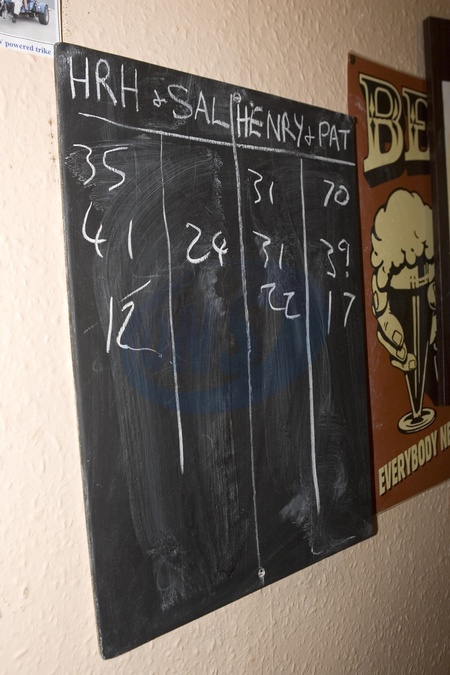 powered trike
HRH & SAL HENRY & PAT
35 31 70
41 24 31 39
12 22 17
BE
EVERYBODY NE